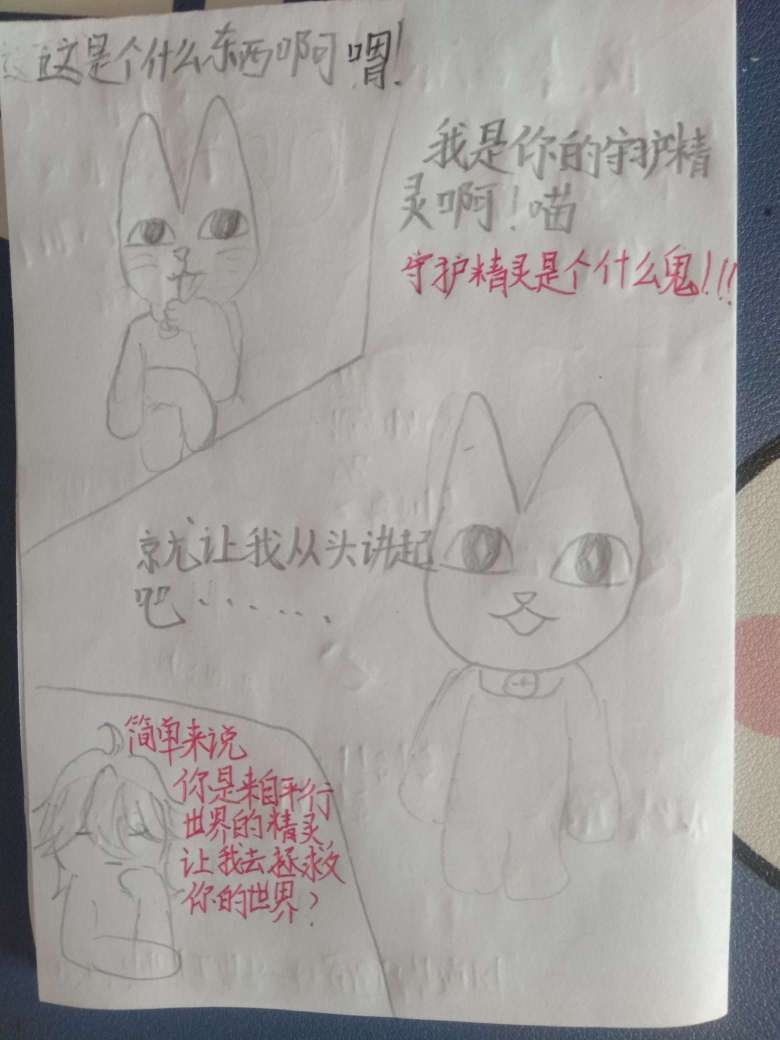 这是个什么东西啊喵!
我是你的守护精
灵啊!喵
守护精灵是个什么鬼!!!
就让我从头讲起
吧......
简单来说
你是来自平行
世界的精灵
让我去拯救
你的世界?